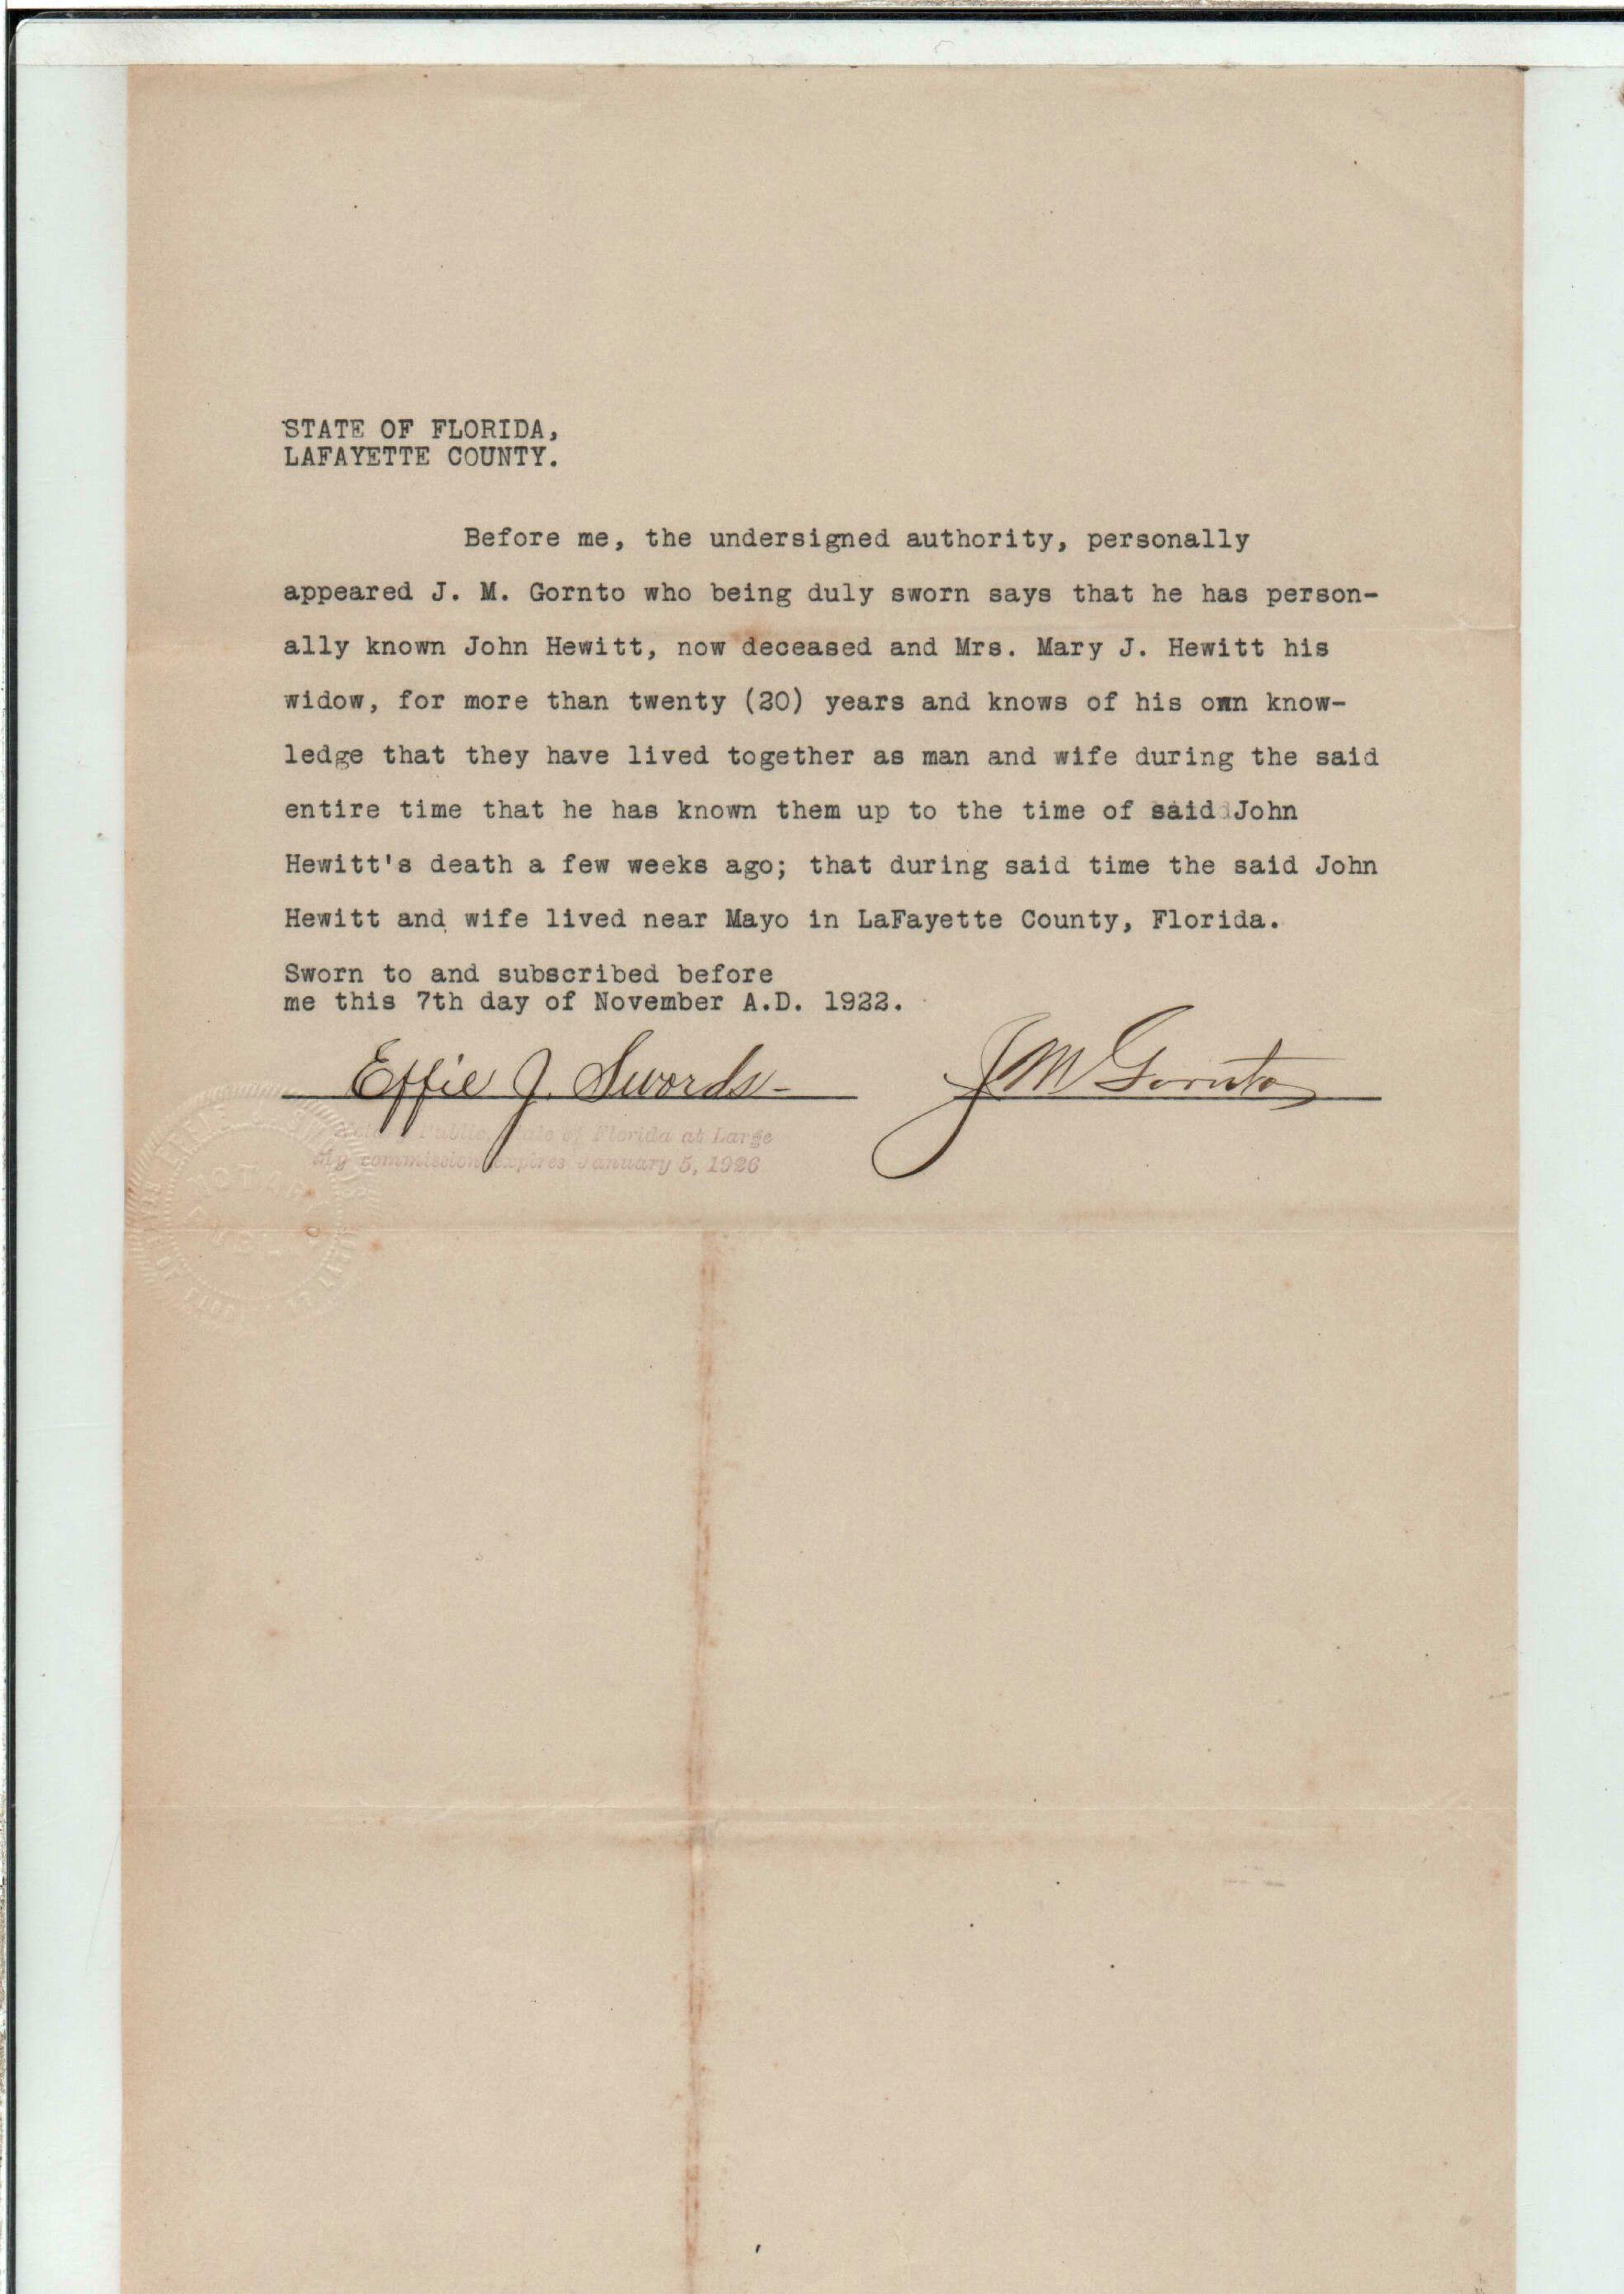 STATE OF FLORIDA,
LAFAYETTE COUNTY.
Before me, the undersigned authority, personally
appeared J. M. Gornto who being duly sworn says that he has person-
ally known John Hewitt, now deceased and Mrs. Mary J. Hewitt his
widow, for more than twenty (20) years and knows of his own know-
ledge that they have lived together as man and wife during the said
entire time that he has known them up to the time of said John
Hewitt's death a few weeks ago; that during said time the said John
Hewitt and wife lived near Mayo in LaFayette County, Florida.
Sworn to and subscribed before
me this 7th day of November A.D. 1922.
Effie J. Swords J M Gornto
Notary Public, State of Florida at Large
My commission expires January 5, 1926
NOTARY